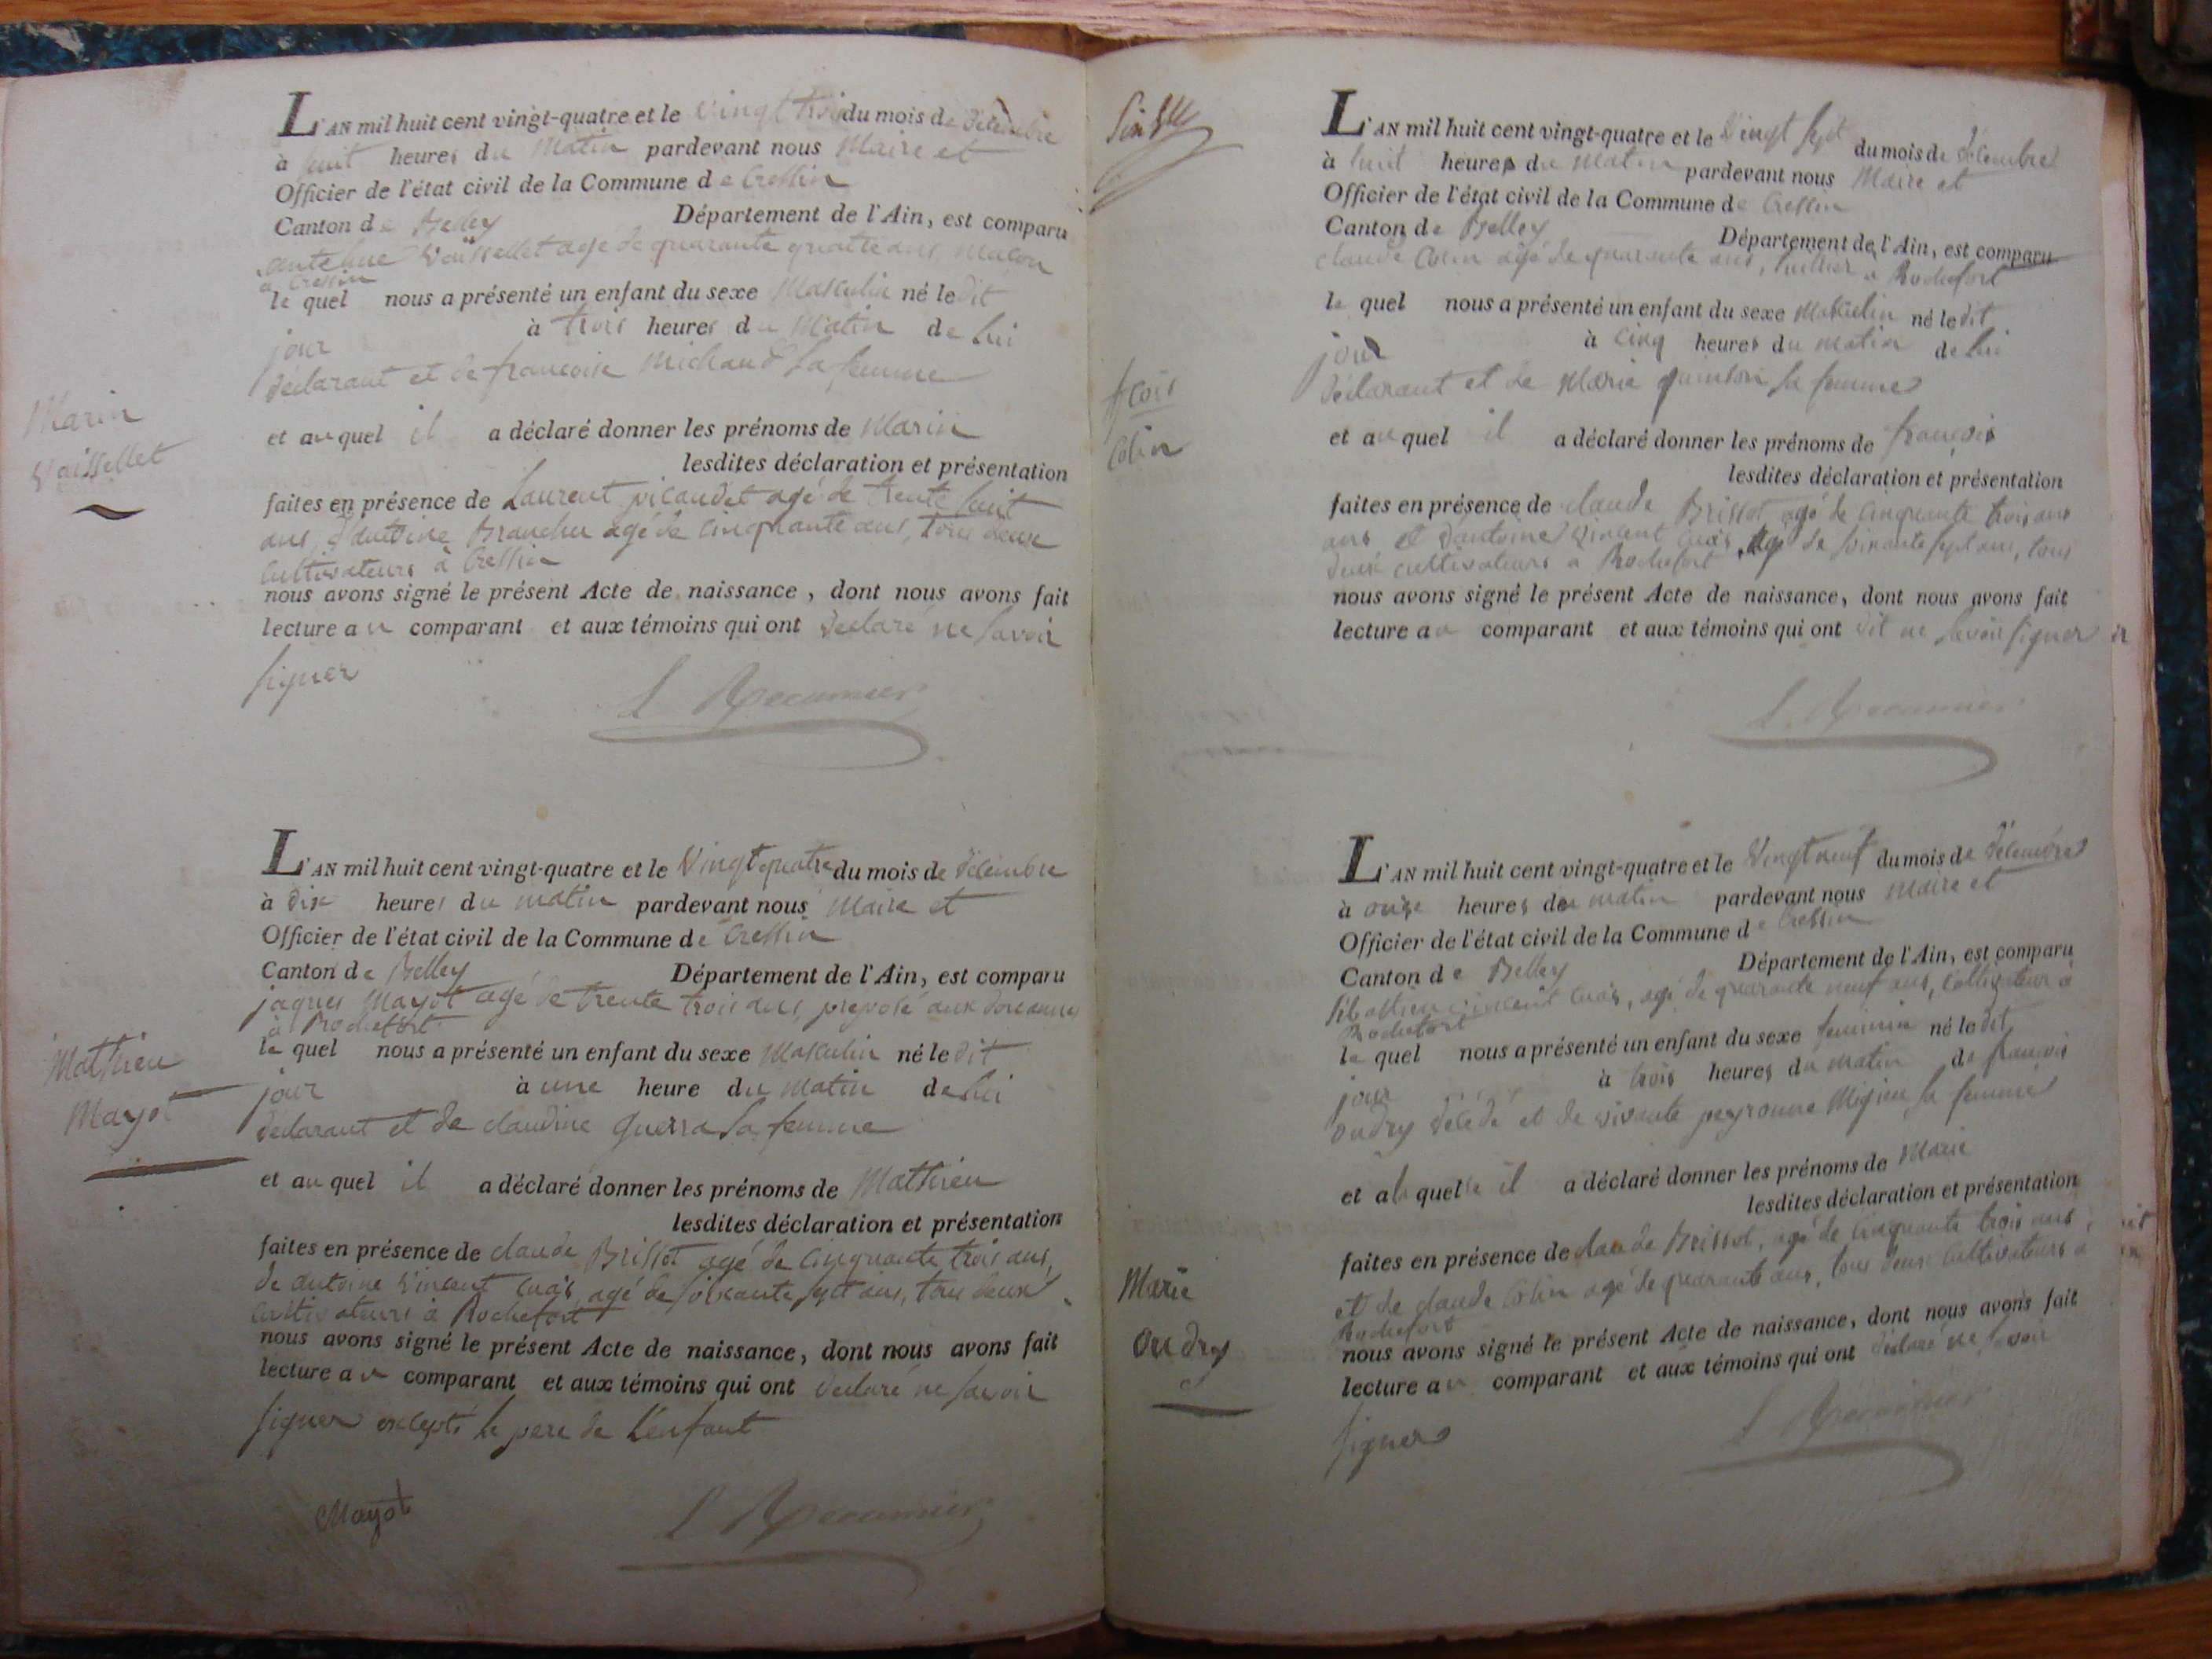 L'AN mil huit cent vingt-quatre et le vingt trois du mois de décembre
à huit heures du matin pardevant nous Maire et
Officier de l'état civil de la Commune de Cressin
Canton de Belley Département de l'Ain, est comparu
anthelme Vaissellet agé de quarante quatre ans, maçon
a Cressin
le quel nous a présenté un enfant du sexe Masculin né le dit
jour à trois heures du matin de lui
déclarant et de francoise Michaud sa femme
Marin
Vaissellet
et au quel il a déclaré donner les prénoms de Marin
lesdites déclaration et présentation
faites en présence de Laurent picaudet agé de trente huit
ans, d'antoine Branchu agé de cinquante ans, tous deux
cultivateurs à Cressin
nous avons signé le présent Acte de naissance, dont nous avons fait
lecture au comparant et aux témoins qui ont déclaré ne savoir
signer
L Recamier
L'AN mil huit cent vingt-quatre et le Vingt quatre du mois de décembre
à dix heures du matin pardevant nous Maire et
Officier de l'état civil de la Commune de Cressin
Canton de Belley Département de l'Ain, est comparu
jaques Mayot agé de trente trois ans, preposé aux douannes
à Rochefort
le quel nous a présenté un enfant du sexe Masculin né le dit
jour à une heure du matin de lui
déclarant et de claudine guerra sa femme
Mathieu
Mayot
et au quel il a déclaré donner les prénoms de Mathieu
lesdites déclaration et présentation
faites en présence de claude Brissot agé de cinquante trois ans,
de antoine Vincent cuas, agé de soixante sept ans, tous deux
cultivateurs a Rochefort
nous avons signé le présent Acte de naissance, dont nous avons fait
lecture au comparant et aux témoins qui ont déclaré ne savoir
signer excepté le pere de l'enfant
Mayot L Recamier
L'AN mil huit cent vingt-quatre et le Vingt sept du mois de décembre
à huit heures du matin pardevant nous Maire et
Officier de l'état civil de la Commune de Cressin
Canton de Belley Département de l'Ain, est comparu
claude Colin agé de quarante ans, a Rochefort
le quel nous a présenté un enfant du sexe Masculin né le dit
jour à cinq heures du matin de lui
déclarant et de Marie quinson sa femme
fcois
Colin
et au quel il a déclaré donner les prénoms de françois
lesdites déclaration et présentation
faites en présence de claude Brissot agé de cinquante trois ans
ans et d'antoine Vincent cuas, agé de soixante sept ans, tous
deux cultivateurs a Rochefort
nous avons signé le présent Acte de naissance, dont nous avons fait
lecture au comparant et aux témoins qui ont dit ne savoir signer
L Recamier
L'AN mil huit cent vingt-quatre et le Vingt neuf du mois de décembre
à onze heures du matin pardevant nous Maire et
Officier de l'état civil de la Commune de Cressin
Canton de Belley Département de l'Ain, est comparu
Sébastien Vincent cuas, agé de quarante neuf ans, cultivateur à
Rochefort
le quel nous a présenté un enfant du sexe feminin né le dit
jour à trois heures du matin de francois
oudry décédé et de vivante peyronne Migieu sa femme
et a la quelle il a déclaré donner les prénoms de Marie
lesdites déclaration et présentation
faites en présence de claude Brissot, agé de cinquante trois ans
et de claude Colin agé de quarante ans, tous deux cultivateurs a
Rochefort
Marie
oudry
nous avons signé le présent Acte de naissance, dont nous avons fait
lecture au comparant et aux témoins qui ont déclaré ne savoir
signer
L Recamier